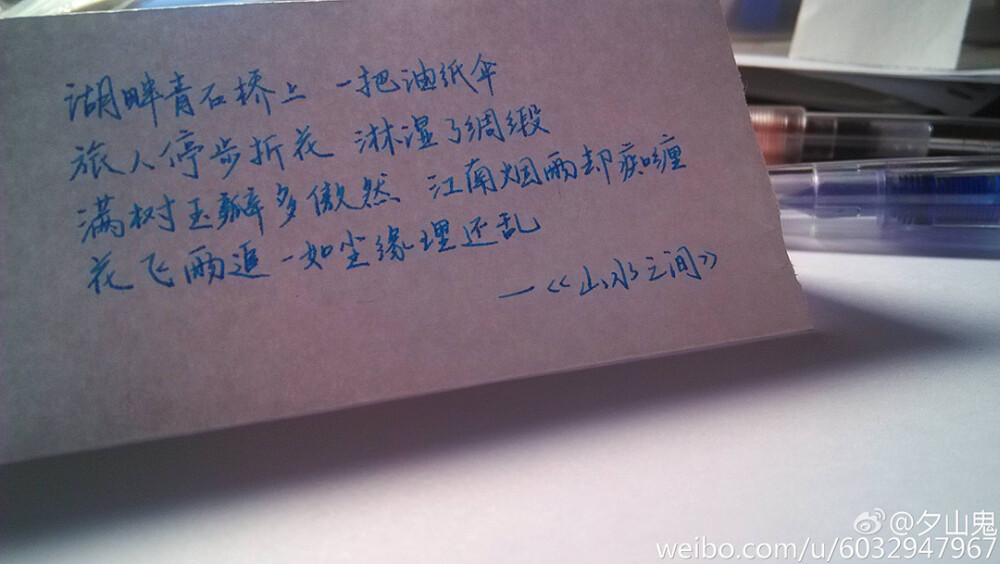 湖畔青石桥上 一把油纸伞
旅人停步折花 淋湿了绸缎
满树玉瓣多傲然 江南烟雨却痴缠
花飞雨追一如尘缘理还乱
—《山水之间》
@夕山鬼
weibo.com/u/6032947967